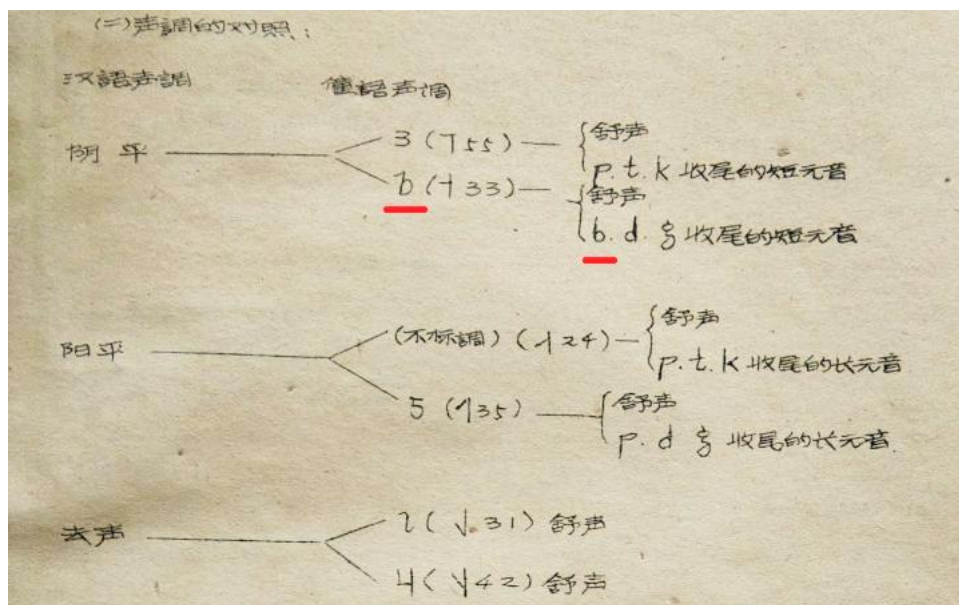 (二)声調的对照:
汉語声調 僮話声调
阴平 3 (˥55) — 舒声
p. t. k 收尾的短元音
b (˧33) — 舒声
b. d. g 收尾的短元音
阳平 (不标調) (˨˦24) — 舒声
p. t. k 收尾的长元音
5 (˧˥35) — 舒声
p. d g 收尾的长元音
去声 2 (˧˩31) 舒声
4 (˦˨42) 舒声